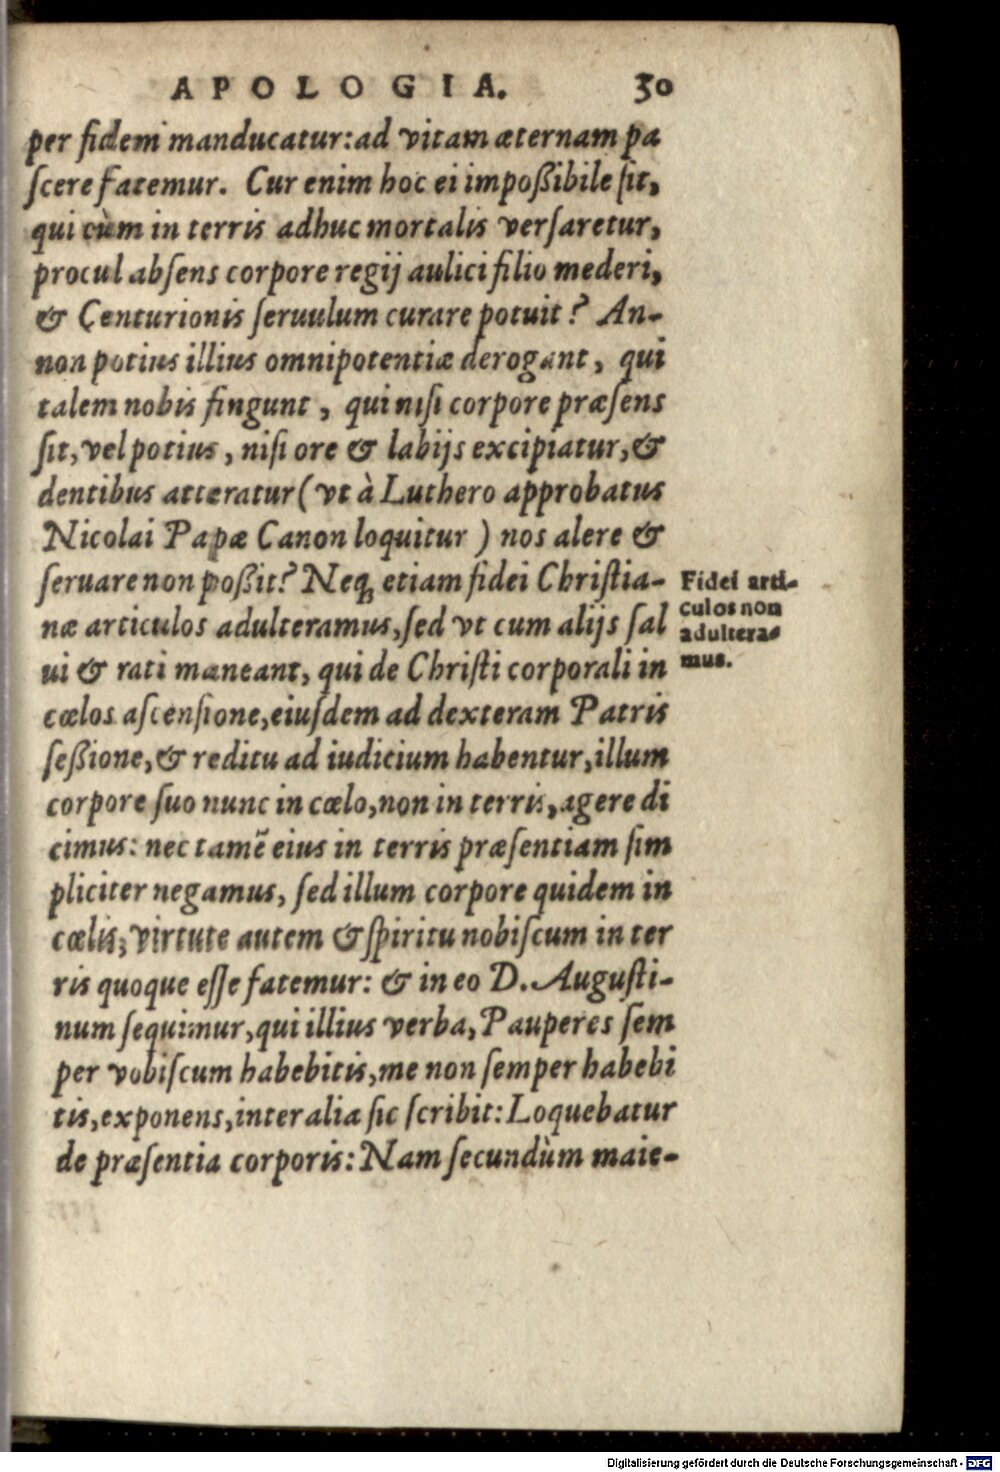 APOLOGIA. 30
per fidem manducatur: ad vitam æternam pa
scere fatemur. Cur enim hoc ei impoßibile sit,
qui cùm in terris adhuc mortalis versaretur,
procul absens corpore regij aulici filio mederi,
& Centurionis seruulum curare potuit? An-
non potius illius omnipotentiæ derogant, qui
talem nobis fingunt, qui nisi corpore præsens
sit, vel potius, nisi ore & labijs excipiatur, &
dentibus atteratur (vt à Luthero approbatus
Nicolai Papæ Canon loquitur) nos alere &
seruare non poßit? Neq; etiam fidei Christia-
næ articulos adulteramus, sed vt cum alijs sal
ui & rati maneant, qui de Christi corporali in
cœlos ascensione, eiusdem ad dexteram Patris
seßione, & reditu ad iudicium habentur, illum
corpore suo nunc in cœlo, non in terris, agere di
cimus: nec tamẽ eius in terris præsentiam sim
pliciter negamus, sed illum corpore quidem in
cœlis, virtute autem & spiritu nobiscum in ter
ris quoque esse fatemur: & in eo D. Augusti-
num sequimur, qui illius verba, Pauperes sem
per vobiscum habebitis, me non semper habebi
tis, exponens, inter alia sic scribit: Loquebatur
de præsentia corporis: Nam secundùm maie-
Fidei arti-
culos non
adultera-
mus.
Digitalisierung gefördert durch die Deutsche Forschungsgemeinschaft - DFG